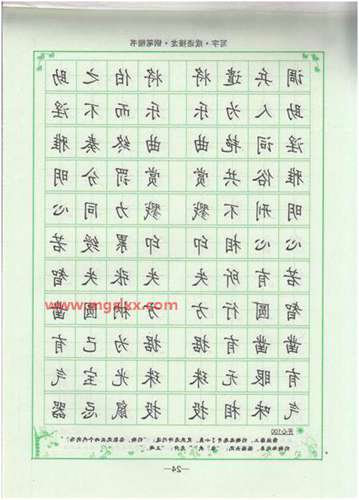 写字·成语接龙·钢笔楷书
调兵遣将 将伯之助
助人为乐 乐而不淫
淫词艳曲 曲终奏雅
雅俗共赏 赏罚分明
明刑不戮 戮力同心
心心相印 印累绶若
若有所失 失张失智
智圆行方 方枘圆凿
www.mgalxx.com
凿凿有据 据为己有
有眼无珠 珠光宝气
气味相投 投鼠忌器
开心100
—24—